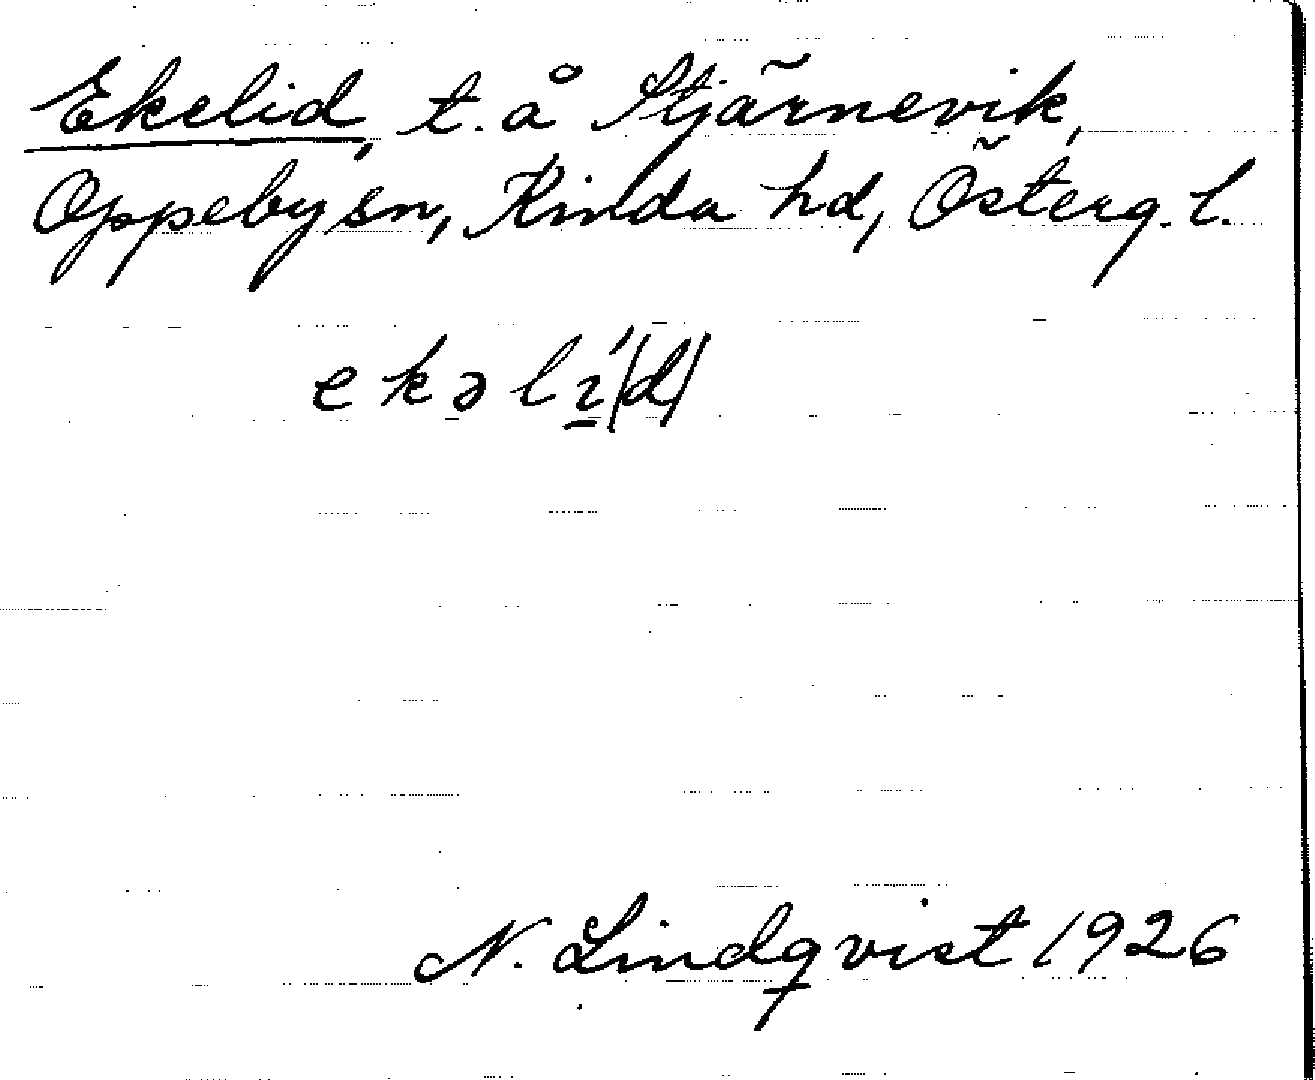 Ekelid, t. å Stjärnevik,
Oppeby sn, Kinda hd, Österg. l.
ekəlı̱́(d)
N. Lindqvist 1926